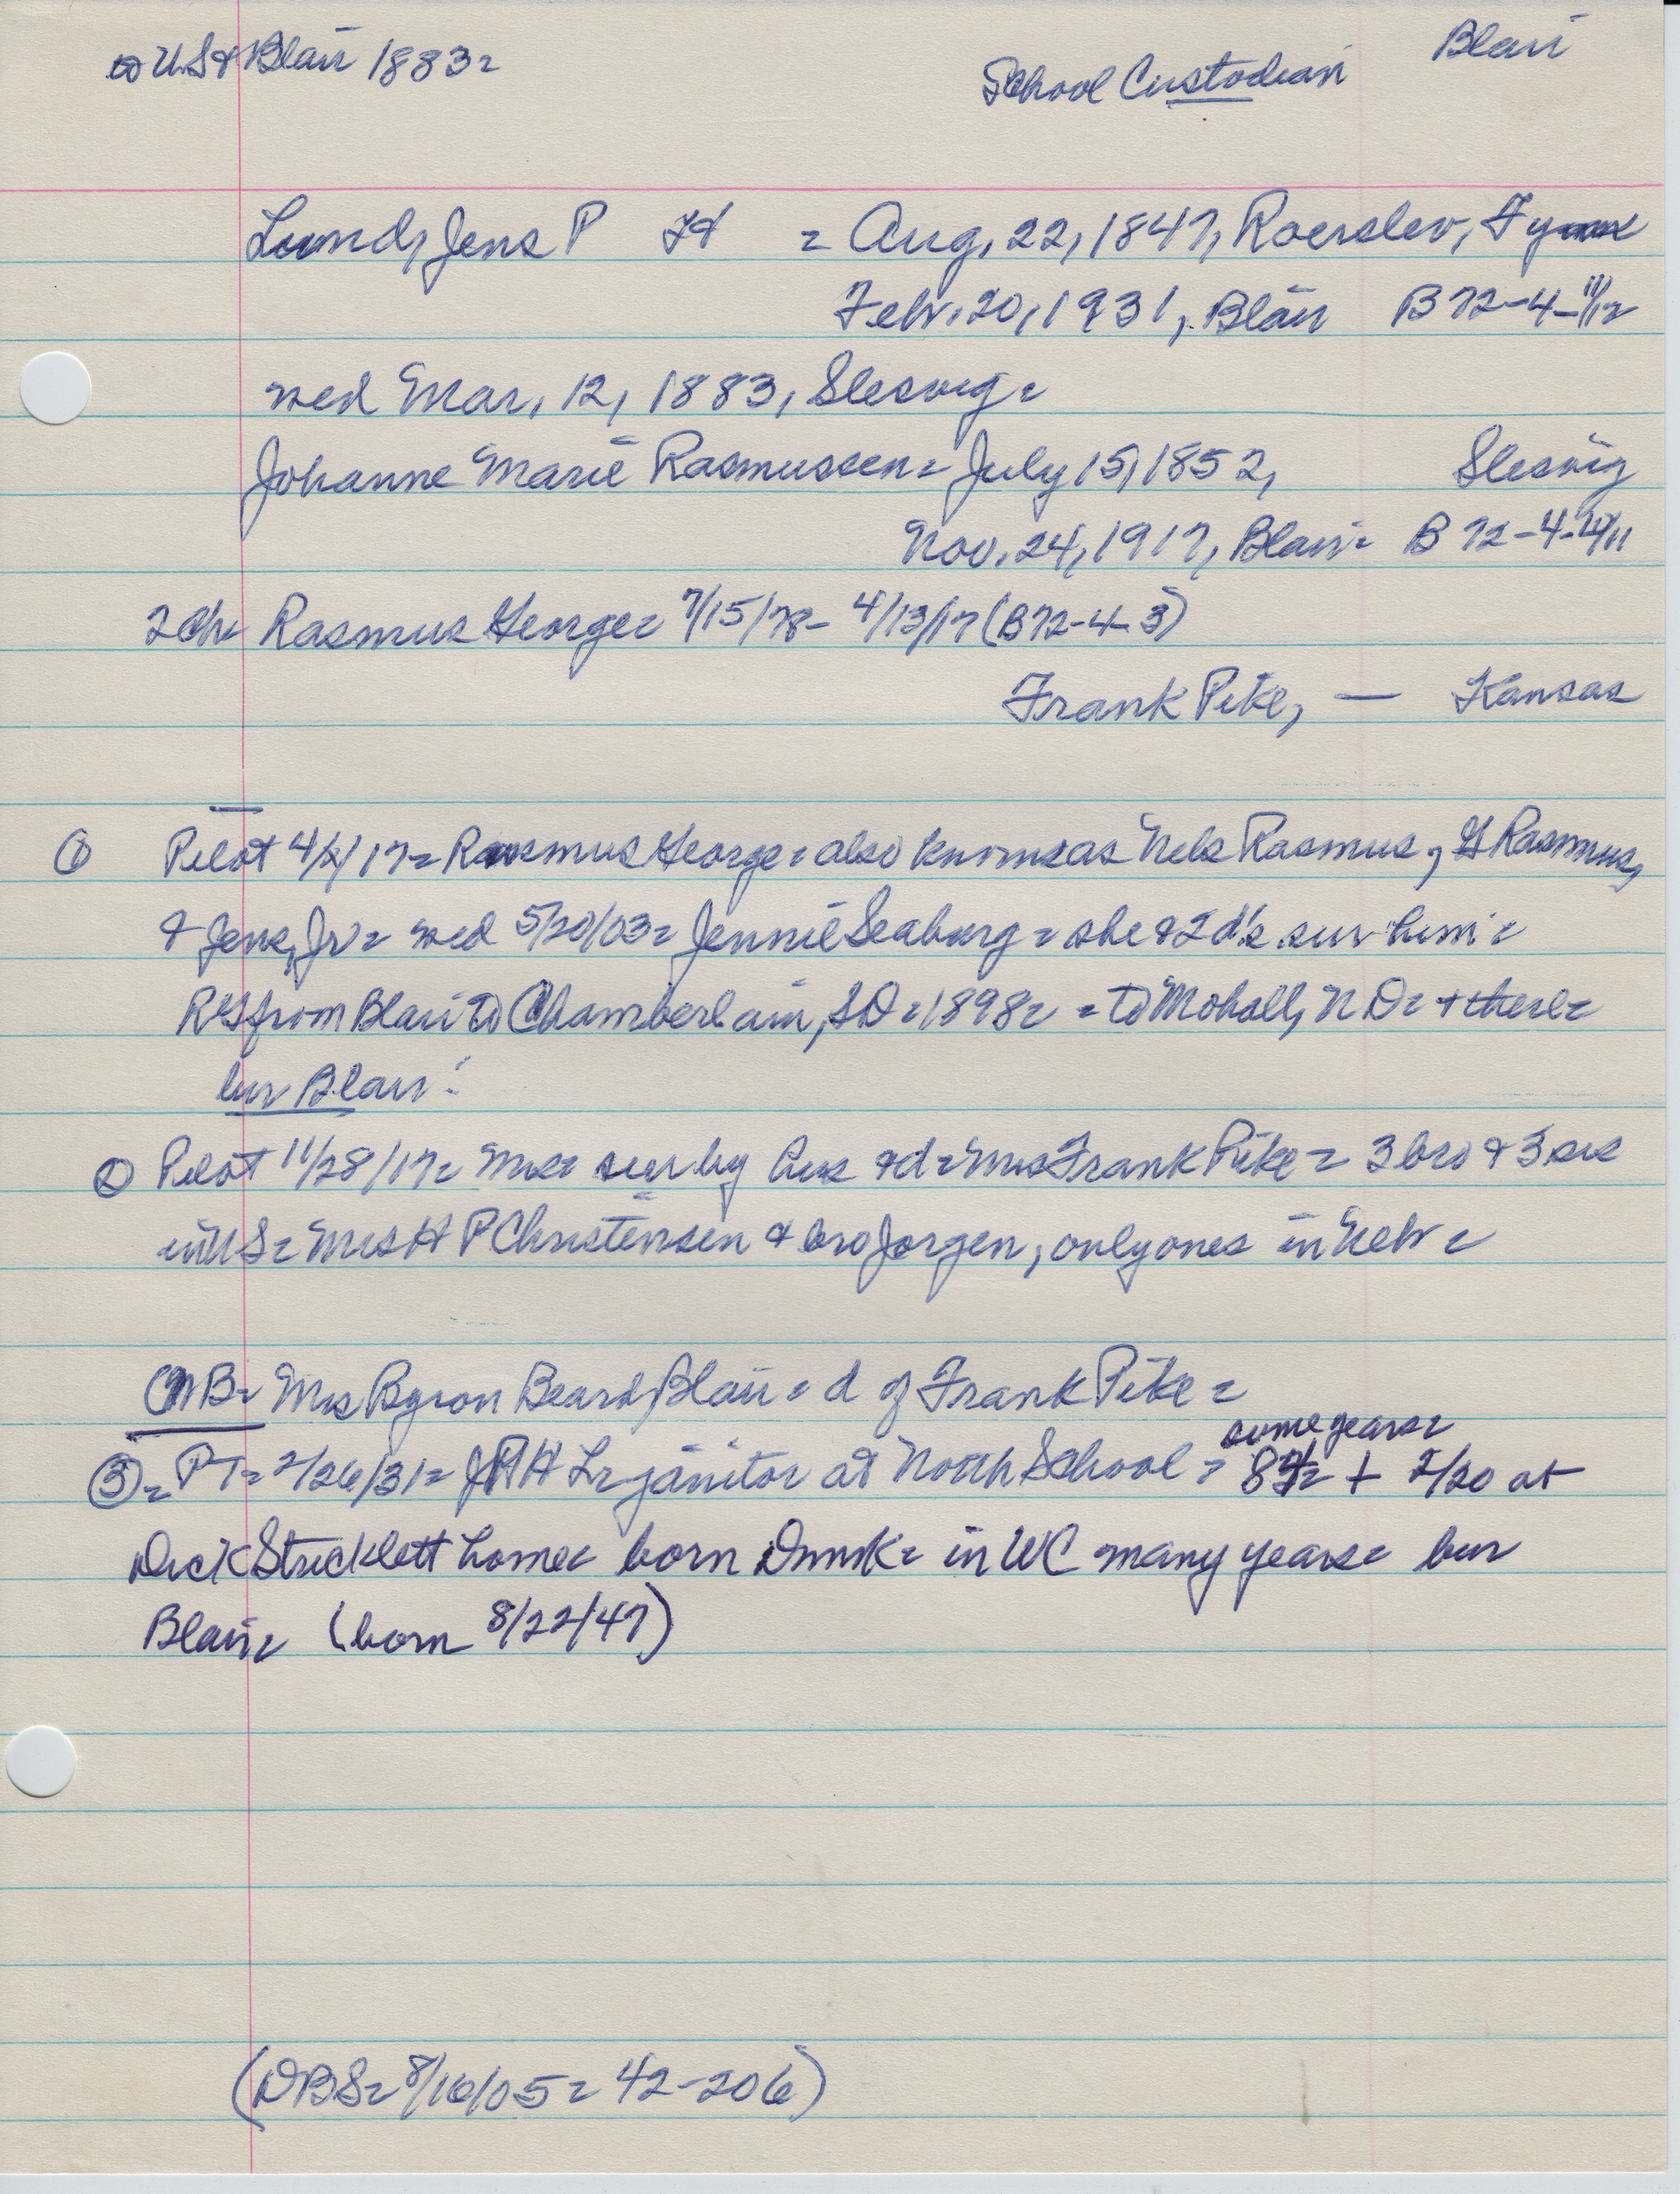 to US & Blair 1883=
School Custodian
Blair
Lund, Jens P H = Aug, 22, 1847, Roerslev, Fyn
Feb. 20, 1931, Blair B 72-4-11/12
wed Mar, 12, 1883, Slesvig=
Johanne Marie Rasmussen= July 15, 1852, Slesvig
Nov. 24, 1917, Blair= B 72-4-
2 ch= Rasmus George= 7/15/78- 4/13/17 (B72-4-3)
Frank Pike, — Kansas
① Pilot 4/ /17= Rasmus George= also known as Nels Rasmus, G Rasmus,
& Jens, Jr= wed 5/20/03= Jennie Seaburg= she & 2 d's sur him=
from Blair to Chamberlain, SD=1898= = to Mohall, N D= & there=
bur Blair=
② Pilot 11/28/17= Mrs= sur by hus & d= Mrs Frank Pike= 3 bro & 3 sis
in US= Mrs H P Christensen & bro Jorgen, only ones in Neb=
(NB= Mrs Byron Beard, Blair= d of Frank Pike=
③= PT= 2/26/31= JPH L= janitor at North School= some years=
8 + 2/20 at
Dick Stricklett home= born Dnmk= in WC many years= bur
Blair= (born 8/22/47)
(DBS= 8/16/05= 42-206)